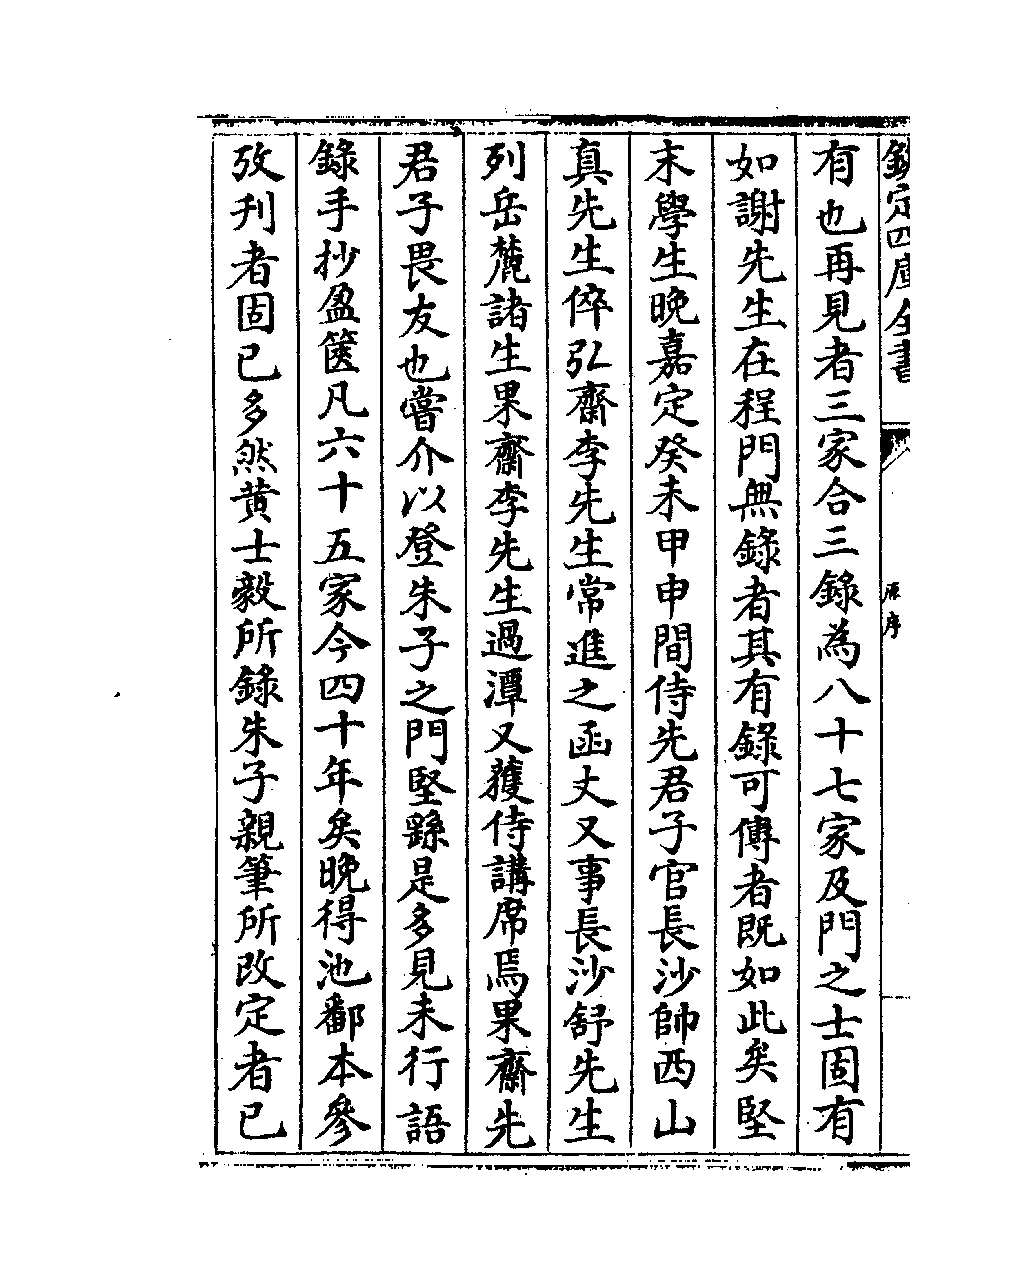 欽定四庫全書
原序
有也再見者三家合三錄為八十七家及門之士固有
如謝先生在程門無錄者其有錄可傳者既如此矣堅
末學生晚嘉定癸未甲申間侍先君子官長沙帥西山
真先生倅弘齋李先生常進之函丈又事長沙舒先生
列岳麓諸生果齋李先生過潭又獲侍講席焉果齋先
君子畏友也嘗介以登朱子之門堅繇是多見未行語
錄手抄盈篋凡六十五家今四十年矣晚得池鄱本參
攷刊者固已多然黄士毅所錄朱子親筆所改定者已